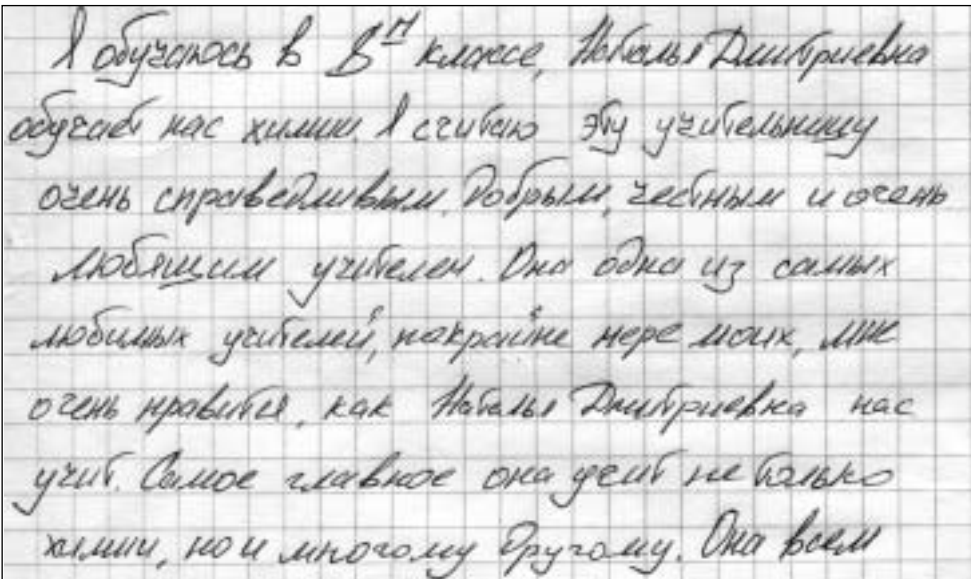 Я обучаюсь в 8"М" классе, Наталья Дмитриевна
обучает нас химии. Я считаю эту учительницу
очень справедливым, добрым, честным и очень
любящим учителем. Она одна из самых
любимых учителей, покрайне мере моих, мне
очень нравится, как Наталья Дмитриевна нас
учит. Самое главное она учит не только
химии, но и многому другому. Она всем